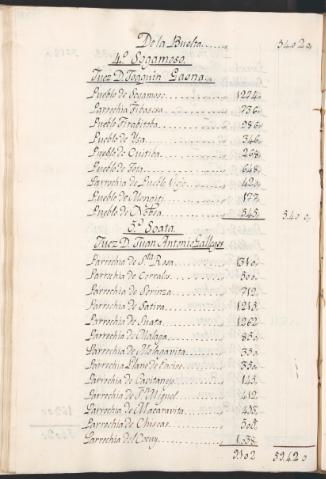 De la Buelta...... 3402o,
4.º Sogamoso.
Juez D. Joaquin Gaona
Pueblo de Sogamoso........ 1224,
Parrochia Tibasosa........ 736,
Pueblo Firabittba........ 286,
Pueblo de Yza........ 346,
Pueblo de Cuitiba........ 298,
Pueblo de Tota........ 648,
Parrochia de Pueblo Viejo........ 420,
Pueblo de Monguí........ 177,
Pueblo de Nobsa........ 345, 340
5.º Soata.
Juez D. Juan Antonio Gallegos
Parrochia de Sta Rosa........ 1310,
Parrochia de Cerralso........ 300,
Parrochia de Serinza........ 712,
Parrochia de Sativa........ 1213,
Parrochia de Suata........ 1262
Parrochia de Malaga........ 850,
Parrochia de Mohagavita........ 330,
Parrochia Llano de Enciso........ 330,
Parrochia de Capitanejo........ 145,
Parrochia de Sn Miguel........ 412,
Parrochia de Macaravita........ 495,
Parrochia de Chiscas........ 308,
Parrochia del Cocuy........ 1,038,
9102 5942o